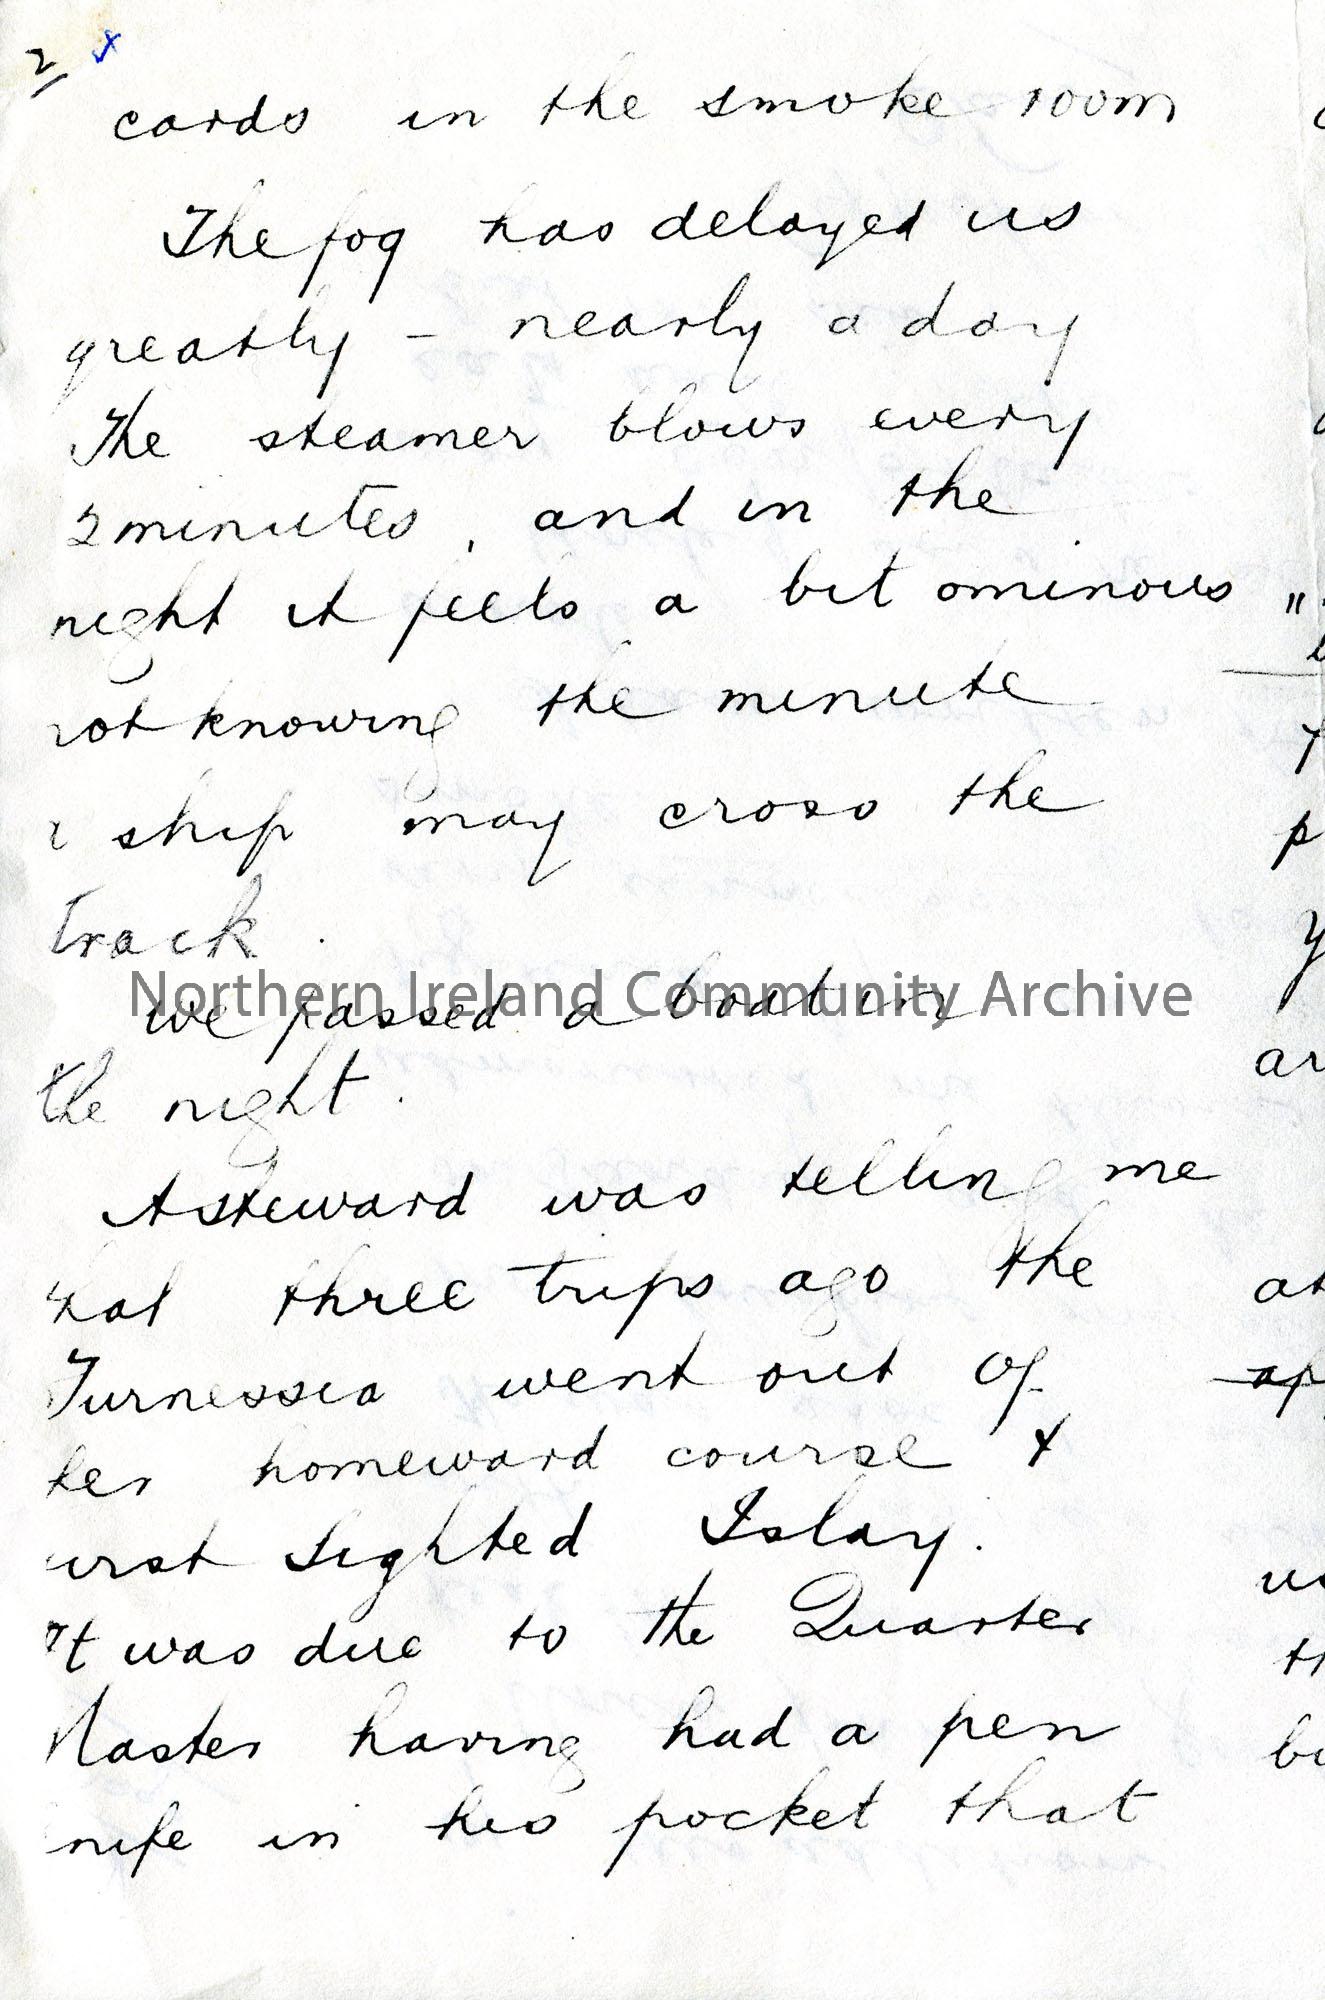 2 x
cards in the smoke room
The fog has delayed us
greatly - nearly a day
The steamer blows every
2 minutes, and in the
night it feels a bit ominous
not knowing the minute
a ship may cross the
track.
we passed a boat in
Northern Ireland Community Archive
the night.
A steward was telling me
that three trips ago the
Furnessia went out of
her homeward course &
first sighted Islay.
It was due to the Quarter
Master having had a pen
knife in his pocket that